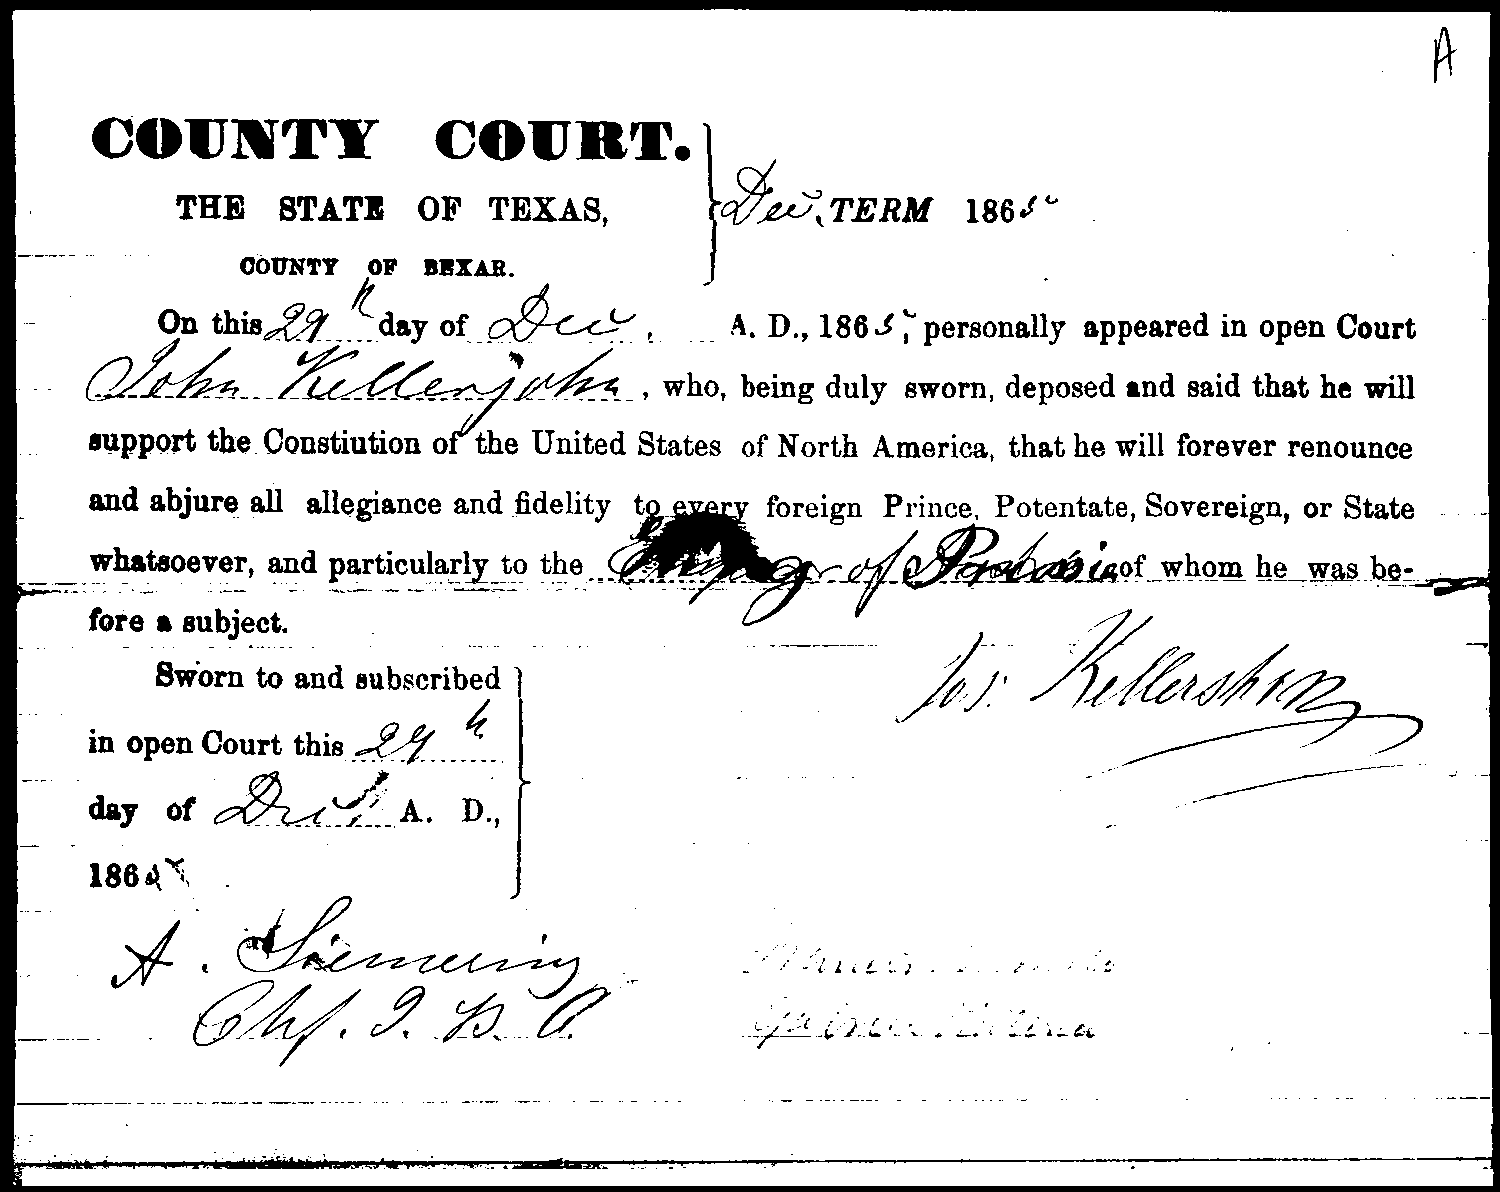 A
COUNTY COURT.
THE STATE OF TEXAS,
COUNTY OF BEXAR.
Dec. TERM 1865
On this 29th day of Dec. A. D., 1865, personally appeared in open Court
John Kellerjohn, who, being duly sworn, deposed and said that he will
support the Constiution of the United States of North America, that he will forever renounce
and abjure all allegiance and fidelity to every foreign Prince, Potentate, Sovereign, or State
whatsoever, and particularly to the of of whom he was be-
fore a subject.
Jos. Kellershon
Sworn to and subscribed
in open Court this 29th
day of Dec. A. D.,
1865
A. Siemering
Chf. J. B. C.